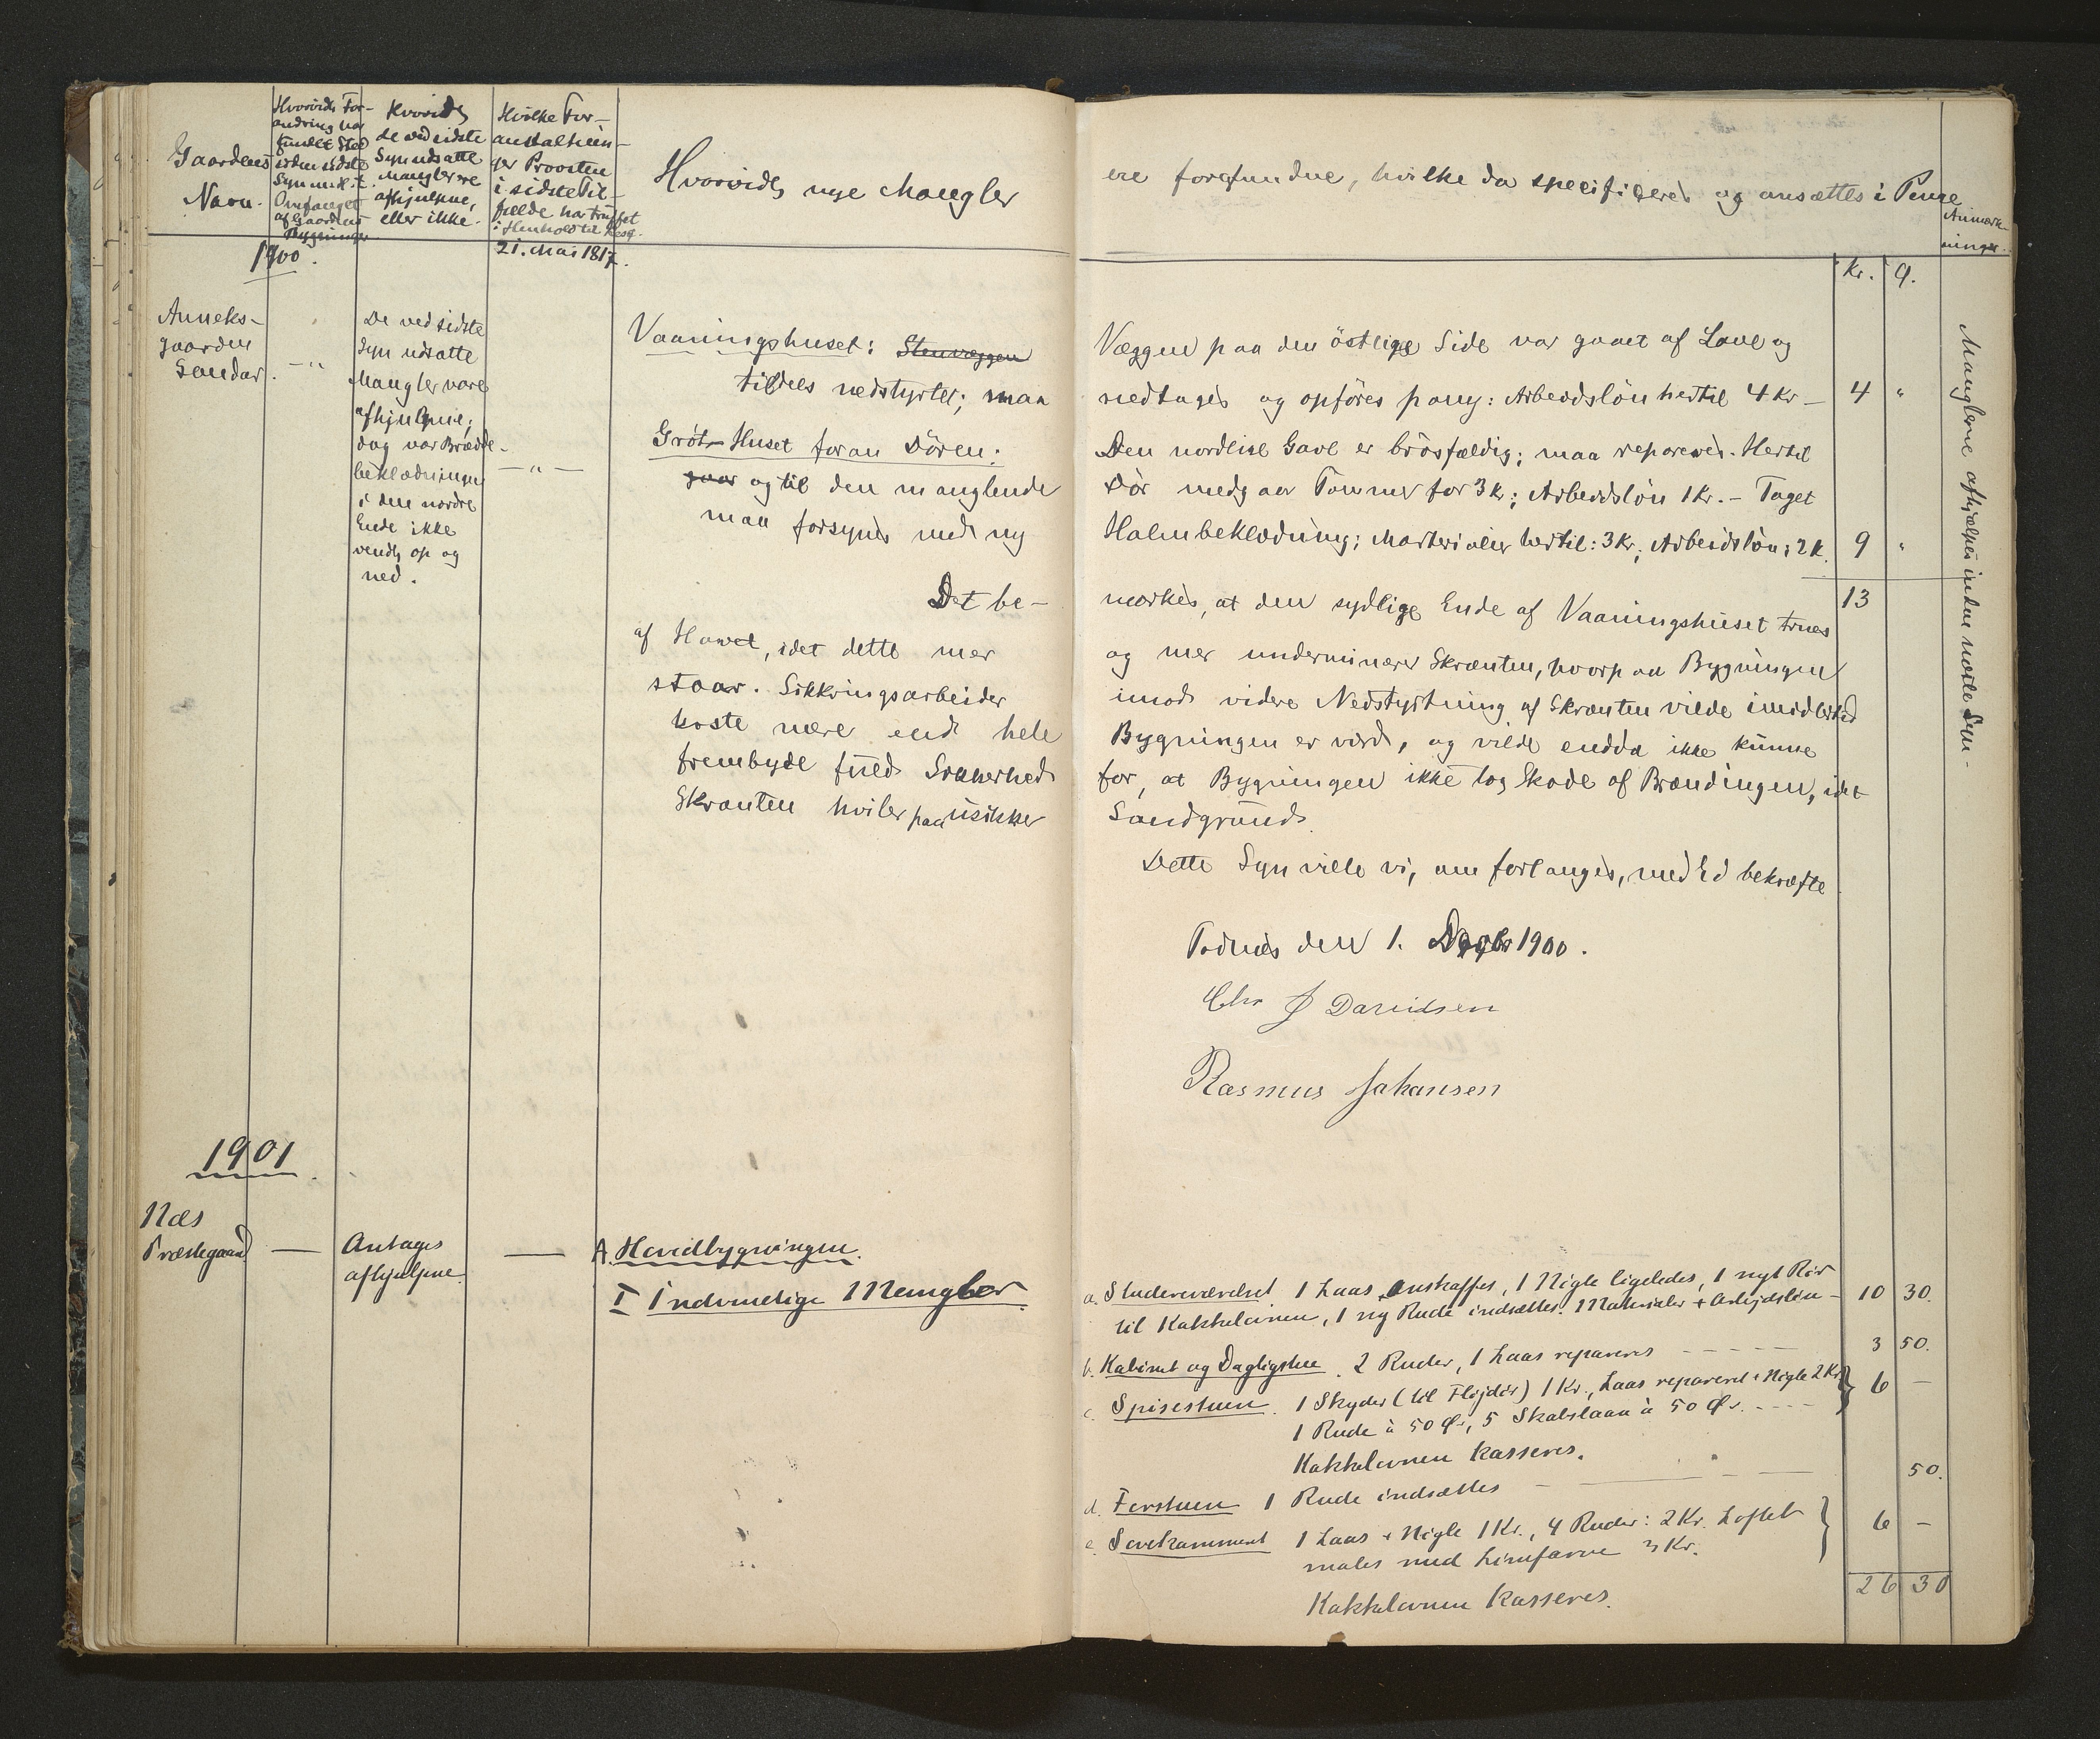 Gaardens
Navn.
Hvorvidt For-
andring har
fundet Sted
siden sidste
Syn m. H. t.
Omfanget
af Gaardens
Bygninger
Hvorvidt
de ved sidste
Syn udsatte
Mangler ere
afhjulpne,
eller ikke.
Hvilke For-
anstaltnin-
ger Provsten
i sidste Til-
fælde har truffet
i Henhold til Resol.
21. Mai 1817.
Hvorvidt nye Mangler
ere forefundne, hvilke da specificeres og ansættes i Penge
Anmærk-
ninger.
1900.
Kr. Ø.
Anneks-
gaarden
Sandar.
— " 
De ved sidste
Syn udsatte
Mangler vare
afhjulpne;
dog var Brædde-
beklædningen
i den nordre
Ende ikke
vendt op og
ned.
— " —
Vaaningshuset: Stenvæggen
tildels nedstyrtet; maa
Gröt-Huset foran Dören:
gaar og til den manglende
maa forsynes med ny
Det be-
af Havet, idet dette mer
staar. Sikkringsarbeider
koste mere end hele
frembyde fuld Sikkerhed
Skrænten hviler paa usikker
Væggen paa den östlige Side var gaaet af Lave og
nedtages og opföres pany: Arbeidslön hertil 4 Kr — 4 "
Den nordlige Gavl er brösfældig; maa repareres. Hertil
Dör medgaar Tommer for 3 Kr; Arbeidslön 1 Kr. – Taget
Halmbeklædning; Materialier hertil: 3 Kr; Arbeidslön: 2 K. 9 "
mærkes, at den sydlige Ende af Vaaningshuset trues 13
og mer underminerer Skrænten, hvorpaa Bygningen
imod videre Nedstyrtning af Skrænten vilde imidlertid
Bygningen er værd, og vilde endda ikke kunne
for, at Bygningen ikke tog Skade af Brændingen, idet
Sandgrund.
Dette Syn ville vi, om forlanges, med Ed bekræfte
den 1. 1900.
Chr J Davidsen
Rasmus Johansen
Manglerne afhjælpes inden næste Syn-
1901
Næs
Præstegaard
—
Antages
afhjulpne.
—
A. Hovedbygningen.
I Indvendige Mangler
a. Studereværelset 1 Laas anskaffes, 1 Nigle ligeledes, 1 nyt Rör
til Kakkelovnen, 1 ny Rude indsættes. Materialer + Arbejdslön - 10 30.
b. Kabinet og Dagligstue. 2 Ruder, 1 Laas repareres - - - - - 3 50.
c. Spisestuen. 1 Skyder (til Flöjdör) 1 Kr., Laas repareret + Nigle 2 Kr. 6 —
1 Rude à 50 Ø., 5 Skabslaaa à 50 Ø. - - - -
Kakkelovnen kasseres.
d. Forstuen 1 Rude indsættes — — — 50.
e. Sovekammeret 1 Laas + Nigle 1 Kr., 4 Ruder: 2 Kr. Loftet 6 —
males med Limfarve 3 Kr.
Kakkelovnen kasseres.
26 30